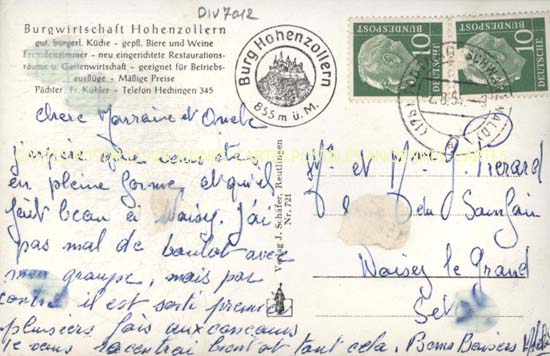 DIV 7012
Burgwirtschaft Hohenzollern
gut. bürgerl. Küche - gepfl. Biere und Weine
Fremdenzimmer - neu eingerichtete Restaurations-
räume u. Gartenwirtschaft - geeignet für Betriebs-
ausflüge - Mäßige Preise
Pächter: Fr. Kuhler - Telefon Hechingen 345
Burg Hohenzollern
855 m ü. M.
10 DEUTSCHE BUNDESPOST
10 DEUTSCHE BUNDESPOST
Chere Marraine et Oncle
J'espère que vous êtes
en pleine forme, et qu'il
fait beau à Noisy. J'ai
pas mal de boulot avec
mon groupe, mais par
contre il est sorti premier
plusieurs fois aux concours
Je vous raconterai bientôt tout cela. Bons Baisers
Verlag J. Schäfer, Reutlingen
Nr. 721
Mr et Me G. Pierard
Noisy le Grand